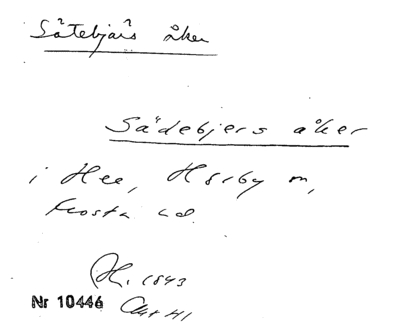 Såtebjärs åker
Sädebjers åker
i Hee, Hörby m,
Frosta hd.
H. 1843
Nr 10446 Akt 41